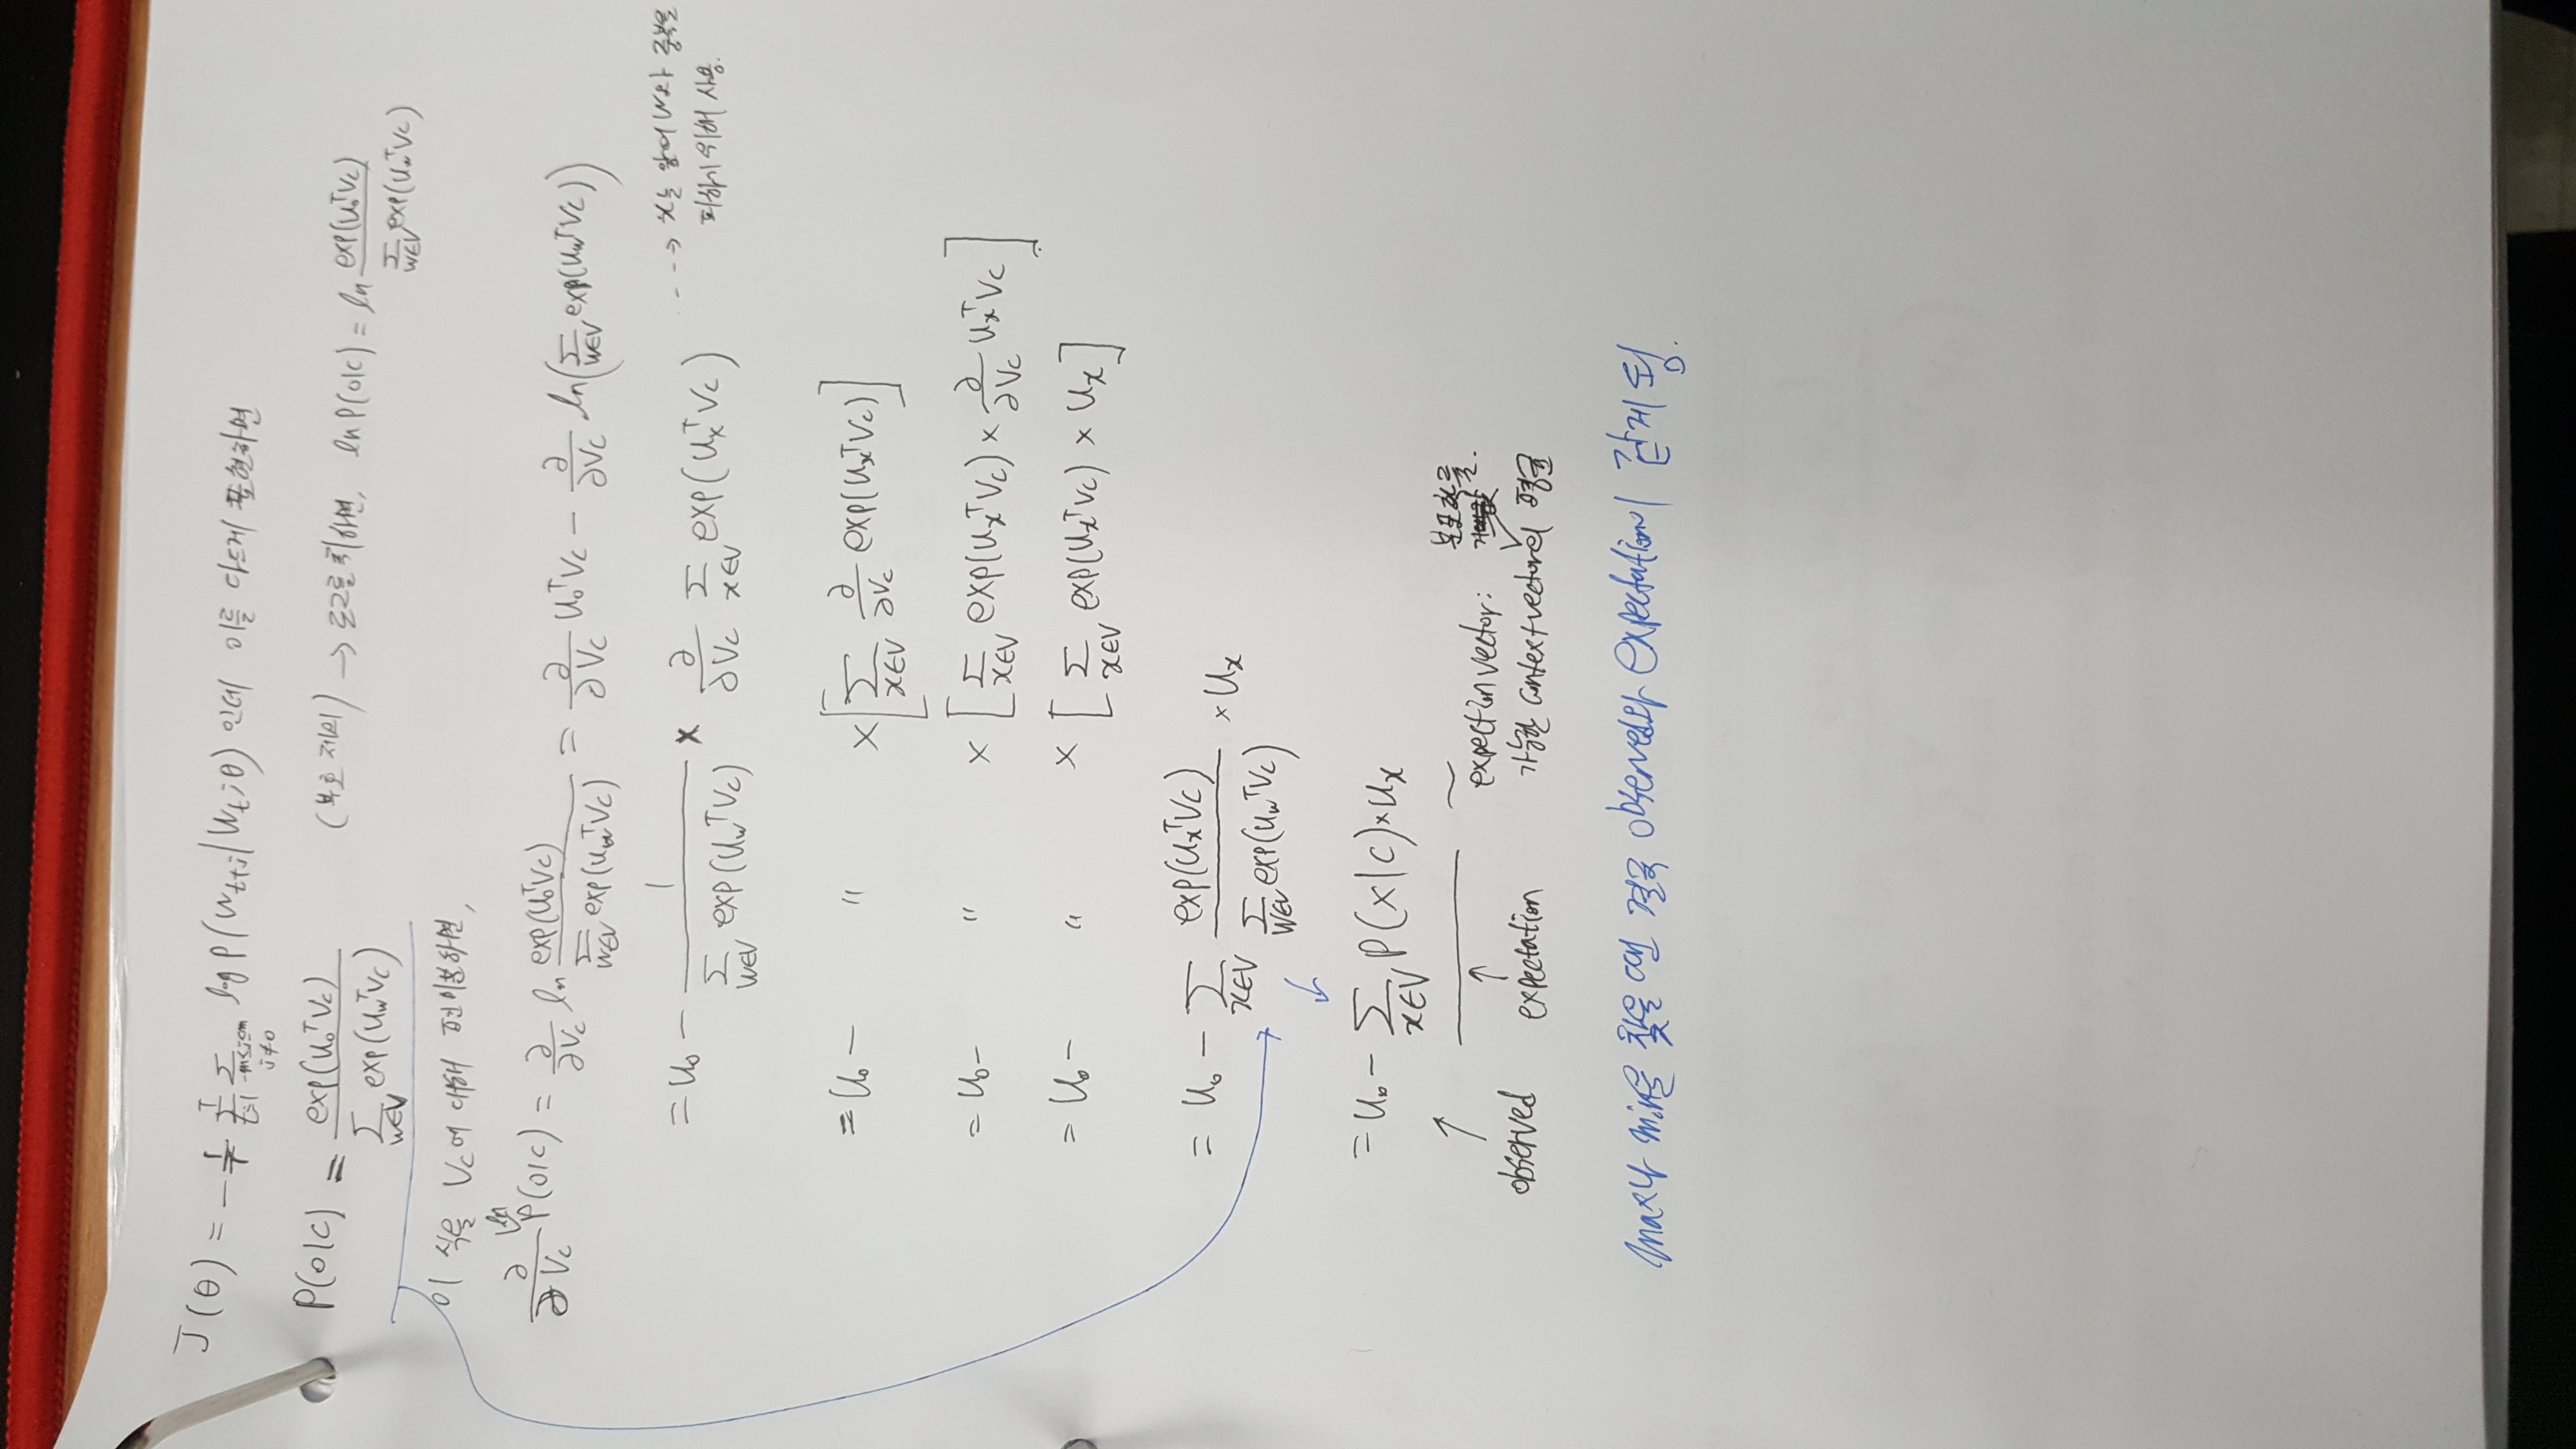 J(θ) = -1/T Σ_{t=1}^{T} Σ_{-m≤j≤m, j≠0} log P(W_{t+j}|W_t;θ) 인데 이를 다르게 표현하면
P(o|c) = exp(u_o^T v_c) / Σ_{w∈V} exp(u_w^T v_c) (부호 제외) → 로그를 취하면, ln P(o|c) = ln exp(u_o^T v_c) / Σ_{w∈V} exp(u_w^T v_c)
이 식을 V_c에 대해 편미분하면,
∂/∂V_c ln P(o|c) = ∂/∂V_c ln exp(u_o^T v_c) / Σ_{w∈V} exp(u_w^T v_c) = ∂/∂V_c u_o^T v_c - ∂/∂V_c ln(Σ_{w∈V} exp(u_w^T v_c))
= u_o - 1 / Σ_{w∈V} exp(u_w^T v_c) × ∂/∂V_c Σ_{x∈V} exp(u_x^T v_c) --→ x는 앞에 w와 중복을
피하기 위해 사용.
= u_o - " × [Σ_{x∈V} ∂/∂V_c exp(u_x^T v_c)]
= u_o - " × [Σ_{x∈V} exp(u_x^T v_c) × ∂/∂V_c u_x^T v_c]
= u_o - " × [Σ_{x∈V} exp(u_x^T v_c) × u_x]
= u_o - Σ_{x∈V} exp(u_x^T v_c) / Σ_{w∈V} exp(u_w^T v_c) × u_x
= u_o - Σ_{x∈V} P(x|c) × u_x
↑ observed
↑ expectation
expection vector: 분포확률.
가능한 context vector의 평균
max나 min을 찾을 땐 결국 observed와 expectation이 같게 됨.